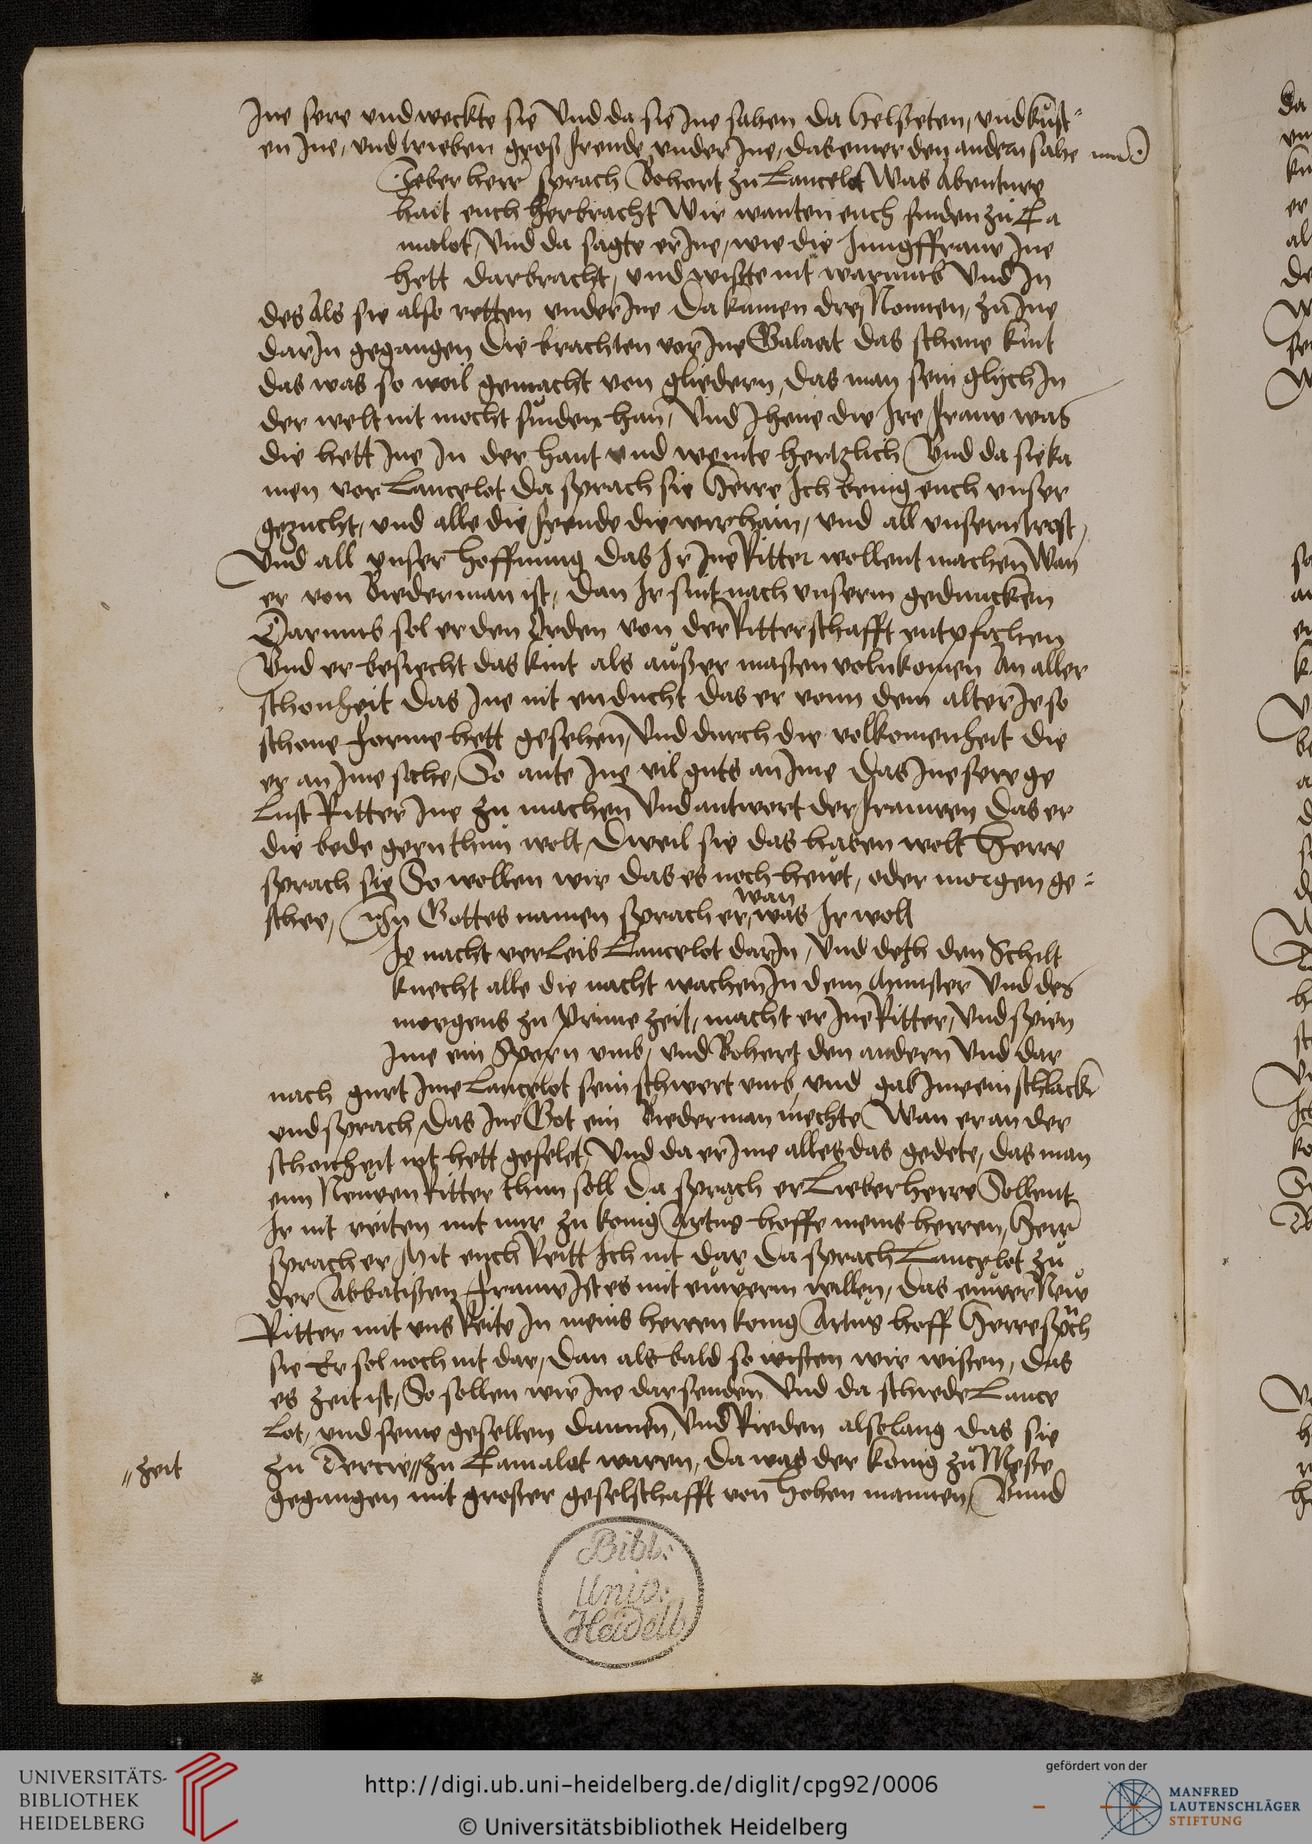 Ine sere vnd weckte sie Vnd da sie Ine sahen da helseten, vnd kust=
en Ine, vnd trieben gros freude vnder Ine, das einer den andern sahe
Jeber herr sprach Bohort zu Lancelot Was Abenture
hait euch herbracht Wir wanten euch finden zu Ca
malot, Vnd da sagte er Ine, wie die Jungffrauw Ine
hett darbracht, vnd wißte nit warumb Vnd In
des Als sie also retten vnder Ine Da kamen drej Nonnen, zu Ine
darIn gegangen Die brachten vor Ine Galaat das schone kint
das was so woil gemacht von gliedern, das man sein glych In
der welt nit mocht finden han, Vnd Ihene die Ire frauw was
die hett Ine In der hant vnd weinte hertzlich Vnd da sie ka
men vor Lancelot Da sprach sie Herre Ich breng euch vnser
gezucht, vnd alle die freude die wir hain, vnd all vnsern trost,
Vnd all vnser hoffnung das Ir Ine Ritter wollent machen Wan
er von Biederman ist, Dan Ir sint nach vnserm geduncken
Darumb sol er den Orden von der Ritterschafft entpfahen
Vnd er besiecht das kint als außer maßen volnkomen An aller
schonheit das Ine nit enducht das er vonn dem alter Ie so
schone forme hett gesehen, Vnd durch die volkomenheit die
er an Ime sahe, So ante Ine vil guts an Ime Das Ine sere ge
Lust Ritter Ine zu machen Vnd antwort der frauwen Das er
die bede gern thun wolt, Dweil sie das haben wolt Herre
sprach sie So wollen wir das es noch heut, oder morgen ge=
schee, In Gottes namen sprach er, was Ir wolt
wan
Ie nacht verleib Lancelot darIn, Vnd deth den Schilt
knecht alle die nacht wachen In dem Munster Vnd des
morgens zu Prime zeit, macht er Ine Ritter, Vnd spien
Ime ein Sporn vmb, vnd Bohert den andern Vnd dar
nach gurt Ime Lancelot sein schwert vmb, vnd gab Ime ein schlack
vnd sprach, Das Ine Got ein Biederman mechte Wan er an der
schonheit nit hett gefelet, Vnd da er Ime alles das gedete, das man
eim Neuwen Ritter thun soll Da sprach er Lieber herre Sollent
Ir nit reiten mit mir zu konig Artus hoffe meins herren, Herr
sprach er Mit euch Reitt Ich nit dar Da sprach Lancelot zu
der Abbatißen frauw Ist es mit euwerm willen, das euwer Neuw
Ritter mit vns Reite In meins herren konig Artus hoff Herre sprch
sie Er sol noch nit dar, Dan als bald so wisten wir wisten, Das
es zeit ist, So sollen wir Ine dar senden Vnd da schiede Lance
Lot, vnd seine gesellen dannen, Vnd Rieden also lang das sie
zu Tercie // zu Camalot waren, Da was der konig zu Messe
// zeit
gegangen mit großer geselschafft von hohen mannen, Vnnd
Bibl:
Univ:
Heidelb
UNIVERSITÄTS-
BIBLIOTHEK
HEIDELBERG
http://digi.ub.uni-heidelberg.de/diglit/cpg92/0006
© Universitätsbibliothek Heidelberg
gefördert von der
MANFRED
LAUTENSCHLÄGER
STIFTUNG